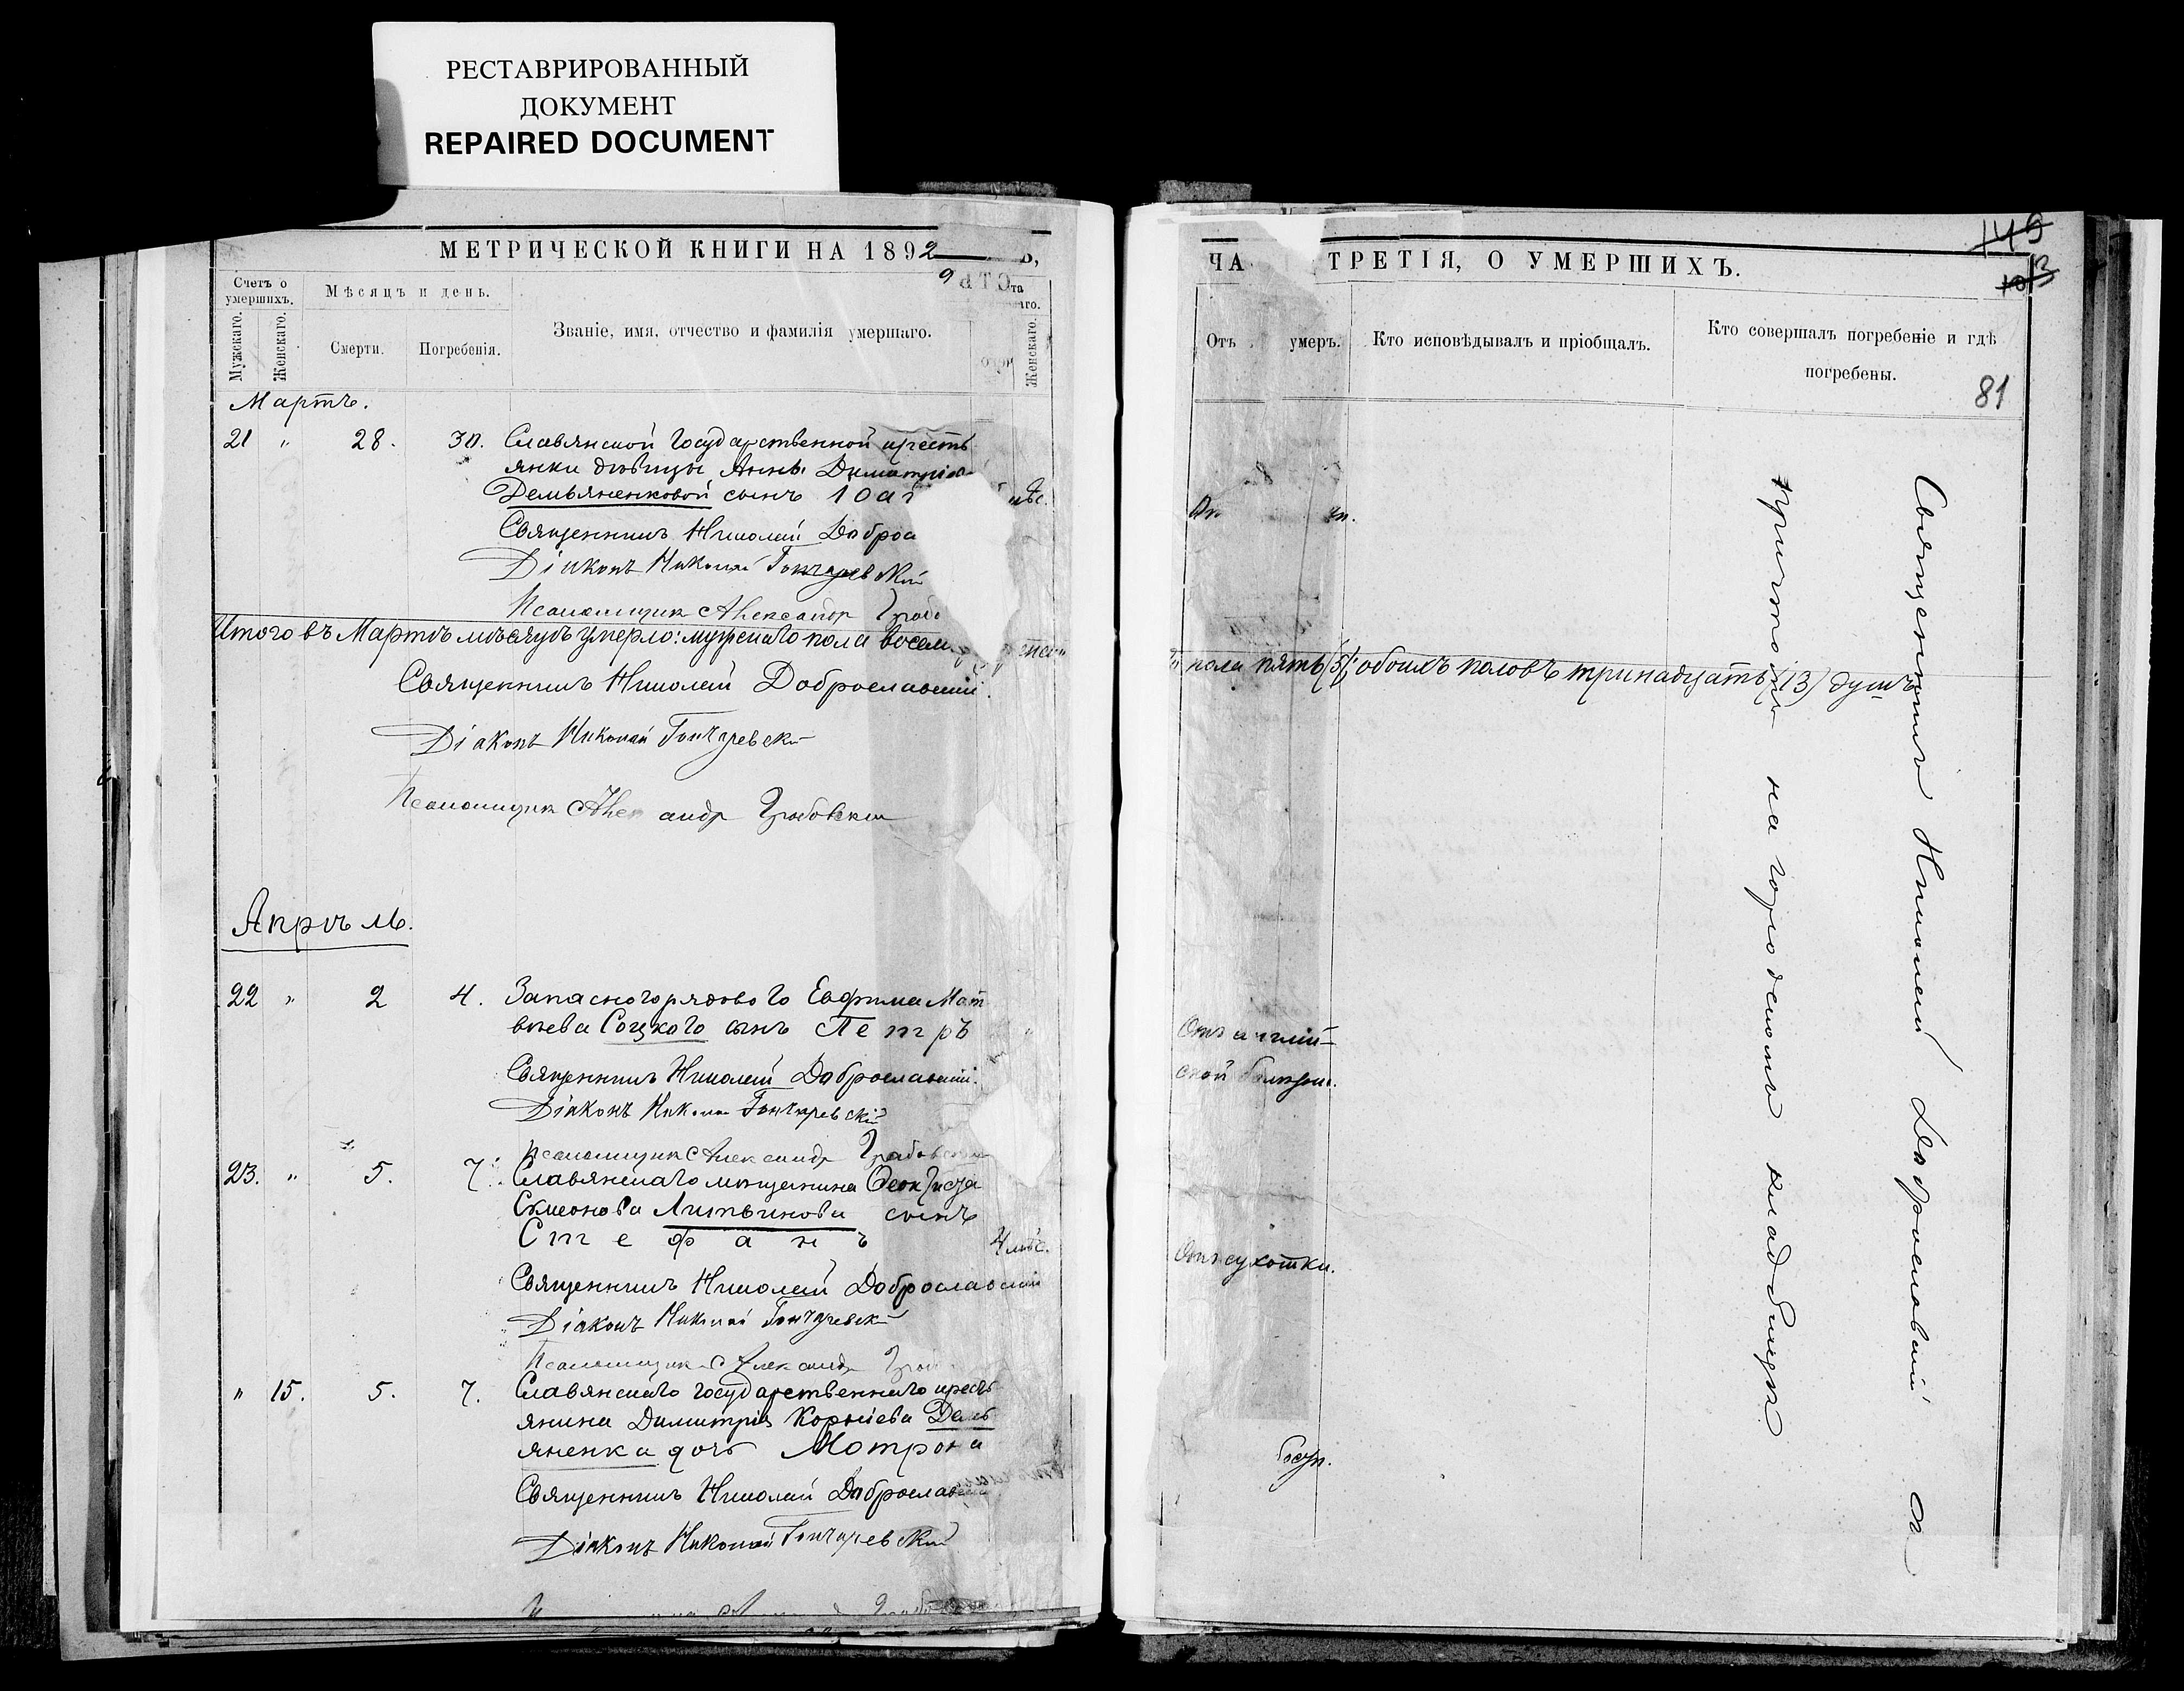 РЕСТАВРИРОВАННЫЙ
ДОКУМЕНТ
REPAIRED DOCUMENT
МЕТРИЧЕСКОЙ КНИГИ НА 1892
Счетъ о умершихъ.
Мужскаго.
Женскаго.
Мѣсяцъ и день.
Смерти.
Погребенія.
Званіе, имя, отчество и фамилія умершаго.
Женскаго.
Мартъ.
21 " 28. 30. Славянской Государственной кресть
янки дѣвицы Анны Димитріев
Демьяненковой сынъ
Священникъ Николай Доброс
Діаконъ Николай Гончаревский
Псаломщик Александр Грабо
Итого въ Мартѣ мѣсяцѣ умерло: мужскаго пола восемь
Священникъ Николай Доброславскій.
Діаконъ Николай Гончаревски
Псаломщик Александр Грабовски
Апрѣль.
22 " 2 4. Запасного рядового Евфима Мат
вѣева Соцкого сынъ Петръ
Священникъ Николай Доброславскій.
Діаконъ Никола Гончаревский
Псаломщик Александр Грабовски
23. " 5. 7. Славянскаго мѣщанина Феоктиста
Симеонова Литвинова сынъ
Стефанъ 4 мѣс.
Священникъ Николай Доброславскій
Діаконъ Николай Гончаревск
Псаломщик Александр Граб
" 15. 5. 7. Славянскаго государственнаго кресть
янина Димитрія Корнѣева Демь
яненка дочь Матрона
Священникъ Николай Доброславскій
Діаконъ Николай Гончаревский
ЧА ТРЕТІЯ, О УМЕРШИХЪ.
149
103
Отъ умеръ.
Кто исповѣдывалъ и пріобщалъ.
Кто совершалъ погребеніе и гдѣ
погребены.
81
пола пять (5); обоихъ половъ тринадцать (13) душъ
Отъ англій-
ской болѣзни.
Отъ сухотки.
Священникъ Николай Доброславскій съ
причтомъ на городскомъ кладбищѣ